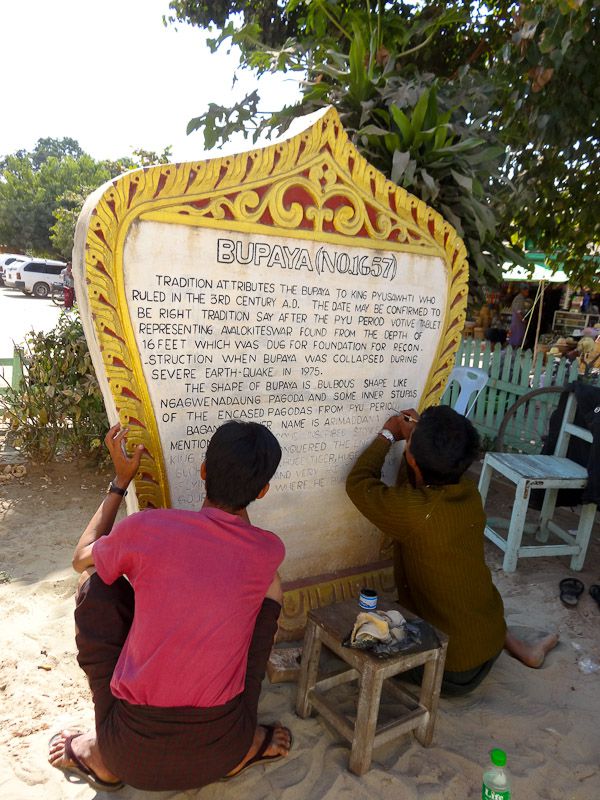 BUPAYA (NO.1657)
TRADITION ATTRIBUTES THE BUPAYA TO KING PYUSAWHTI WHO
RULED IN THE 3RD CENTURY A.D. THE DATE MAY BE CONFIRMED TO
BE RIGHT TRADITION SAY AFTER THE PYU PERIOD VOTIVE TABLET
REPRESENTING AVALOKITESWAR FOUND FROM THE DEPTH OF
16 FEET WHICH WAS DUG FOR FOUNDATION FOR RECON.
.STRUCTION WHEN BUPAYA WAS COLLAPSED DURING
SEVERE EARTH-QUAKE IN 1975.
THE SHAPE OF BUPAYA IS BULBOUS SHAPE LIKE
NGAGWENADAUNG PAGODA AND SOME INNER STUPAS
OF THE ENCASED PAGODAS FROM PYU PERIOD
BAGAN NAME IS ARIMADDANA
MENTION
KING
AND VERY
WHERE HE
Life